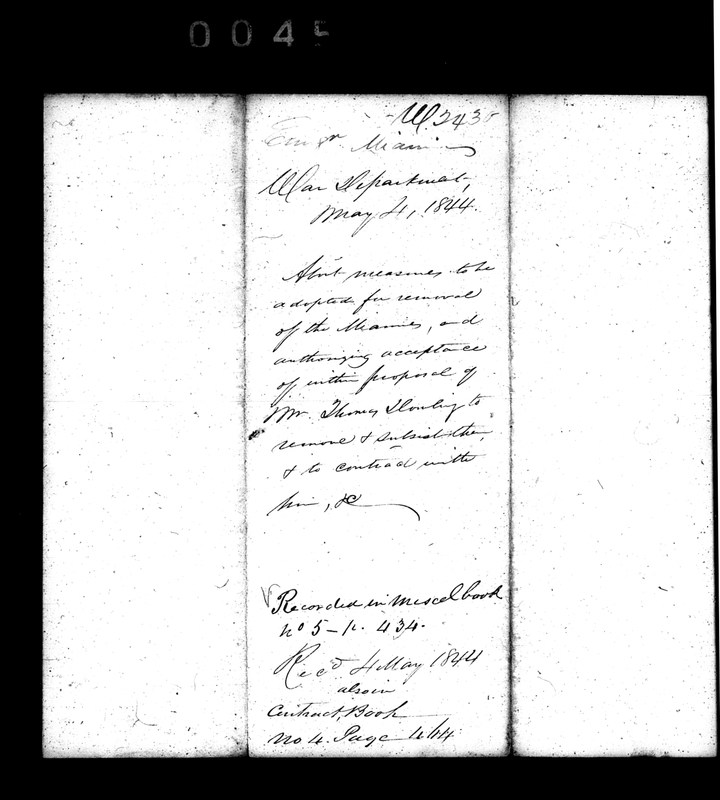 0045
W 2435
Em gn. Miami
War Department,
May 4, 1844.
Abt measures to be
adopted for removal
of the Miamies, and
authorizing acceptance
of within proposal of
Mr. Thomas Dowling to
remove & subsist them,
& to contract with
him, &c
Recorded in Miscel book
no 5 - p. 434.
Rec'd 4 May 1844
also in
Contract, Book
No 4. Page 464